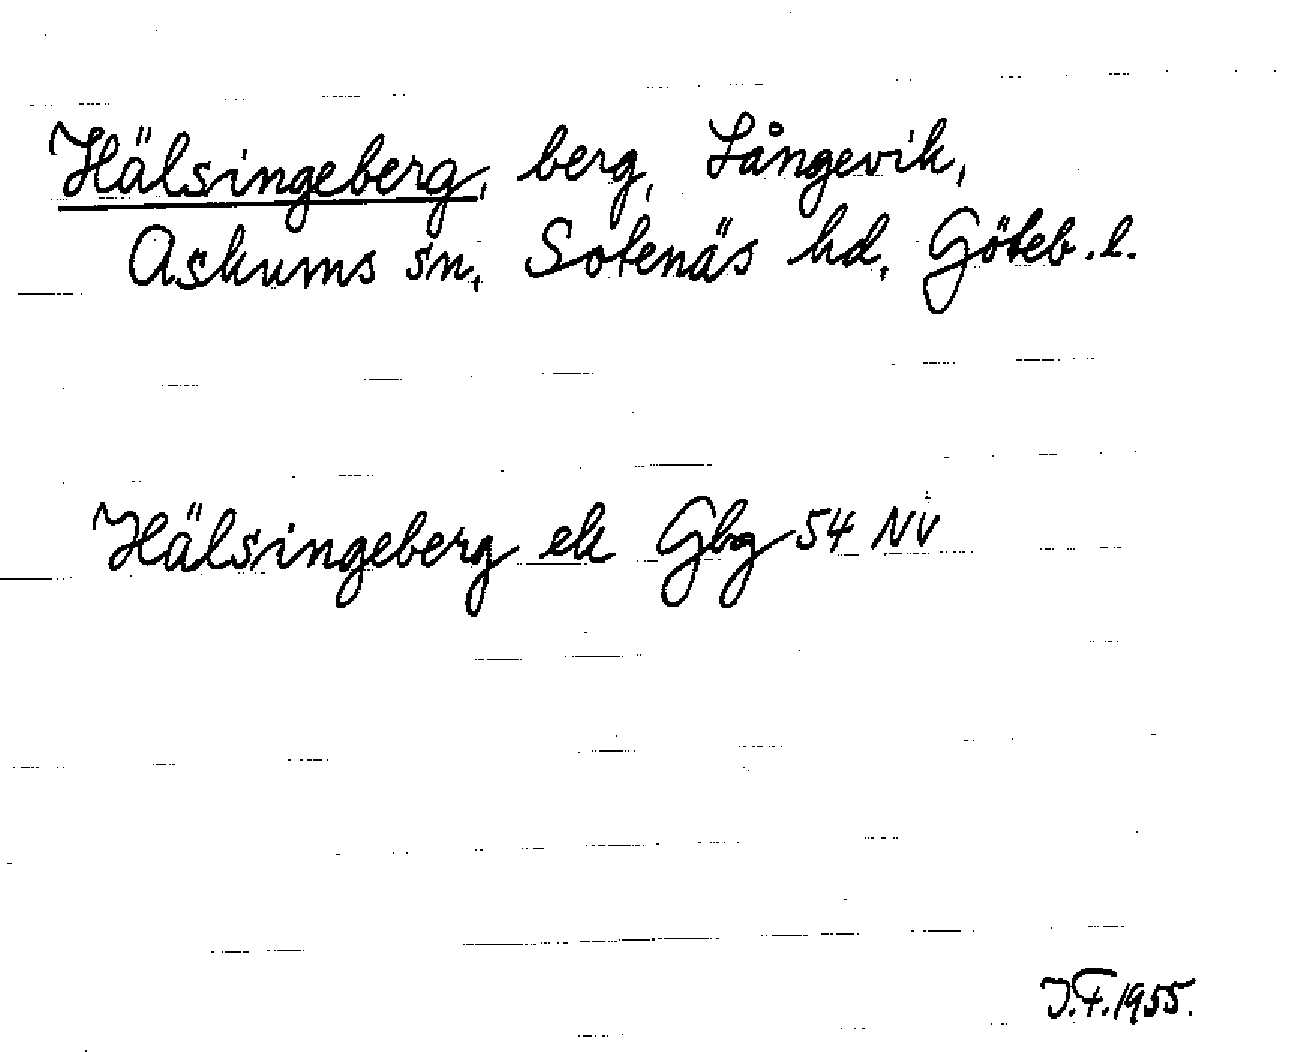 Hälsingeberg, berg, Långevik,
Askums sn, Sotenäs hd, Göteb. l.
Hälsingeberg ek Gbg 54 NV
I.F. 1955.